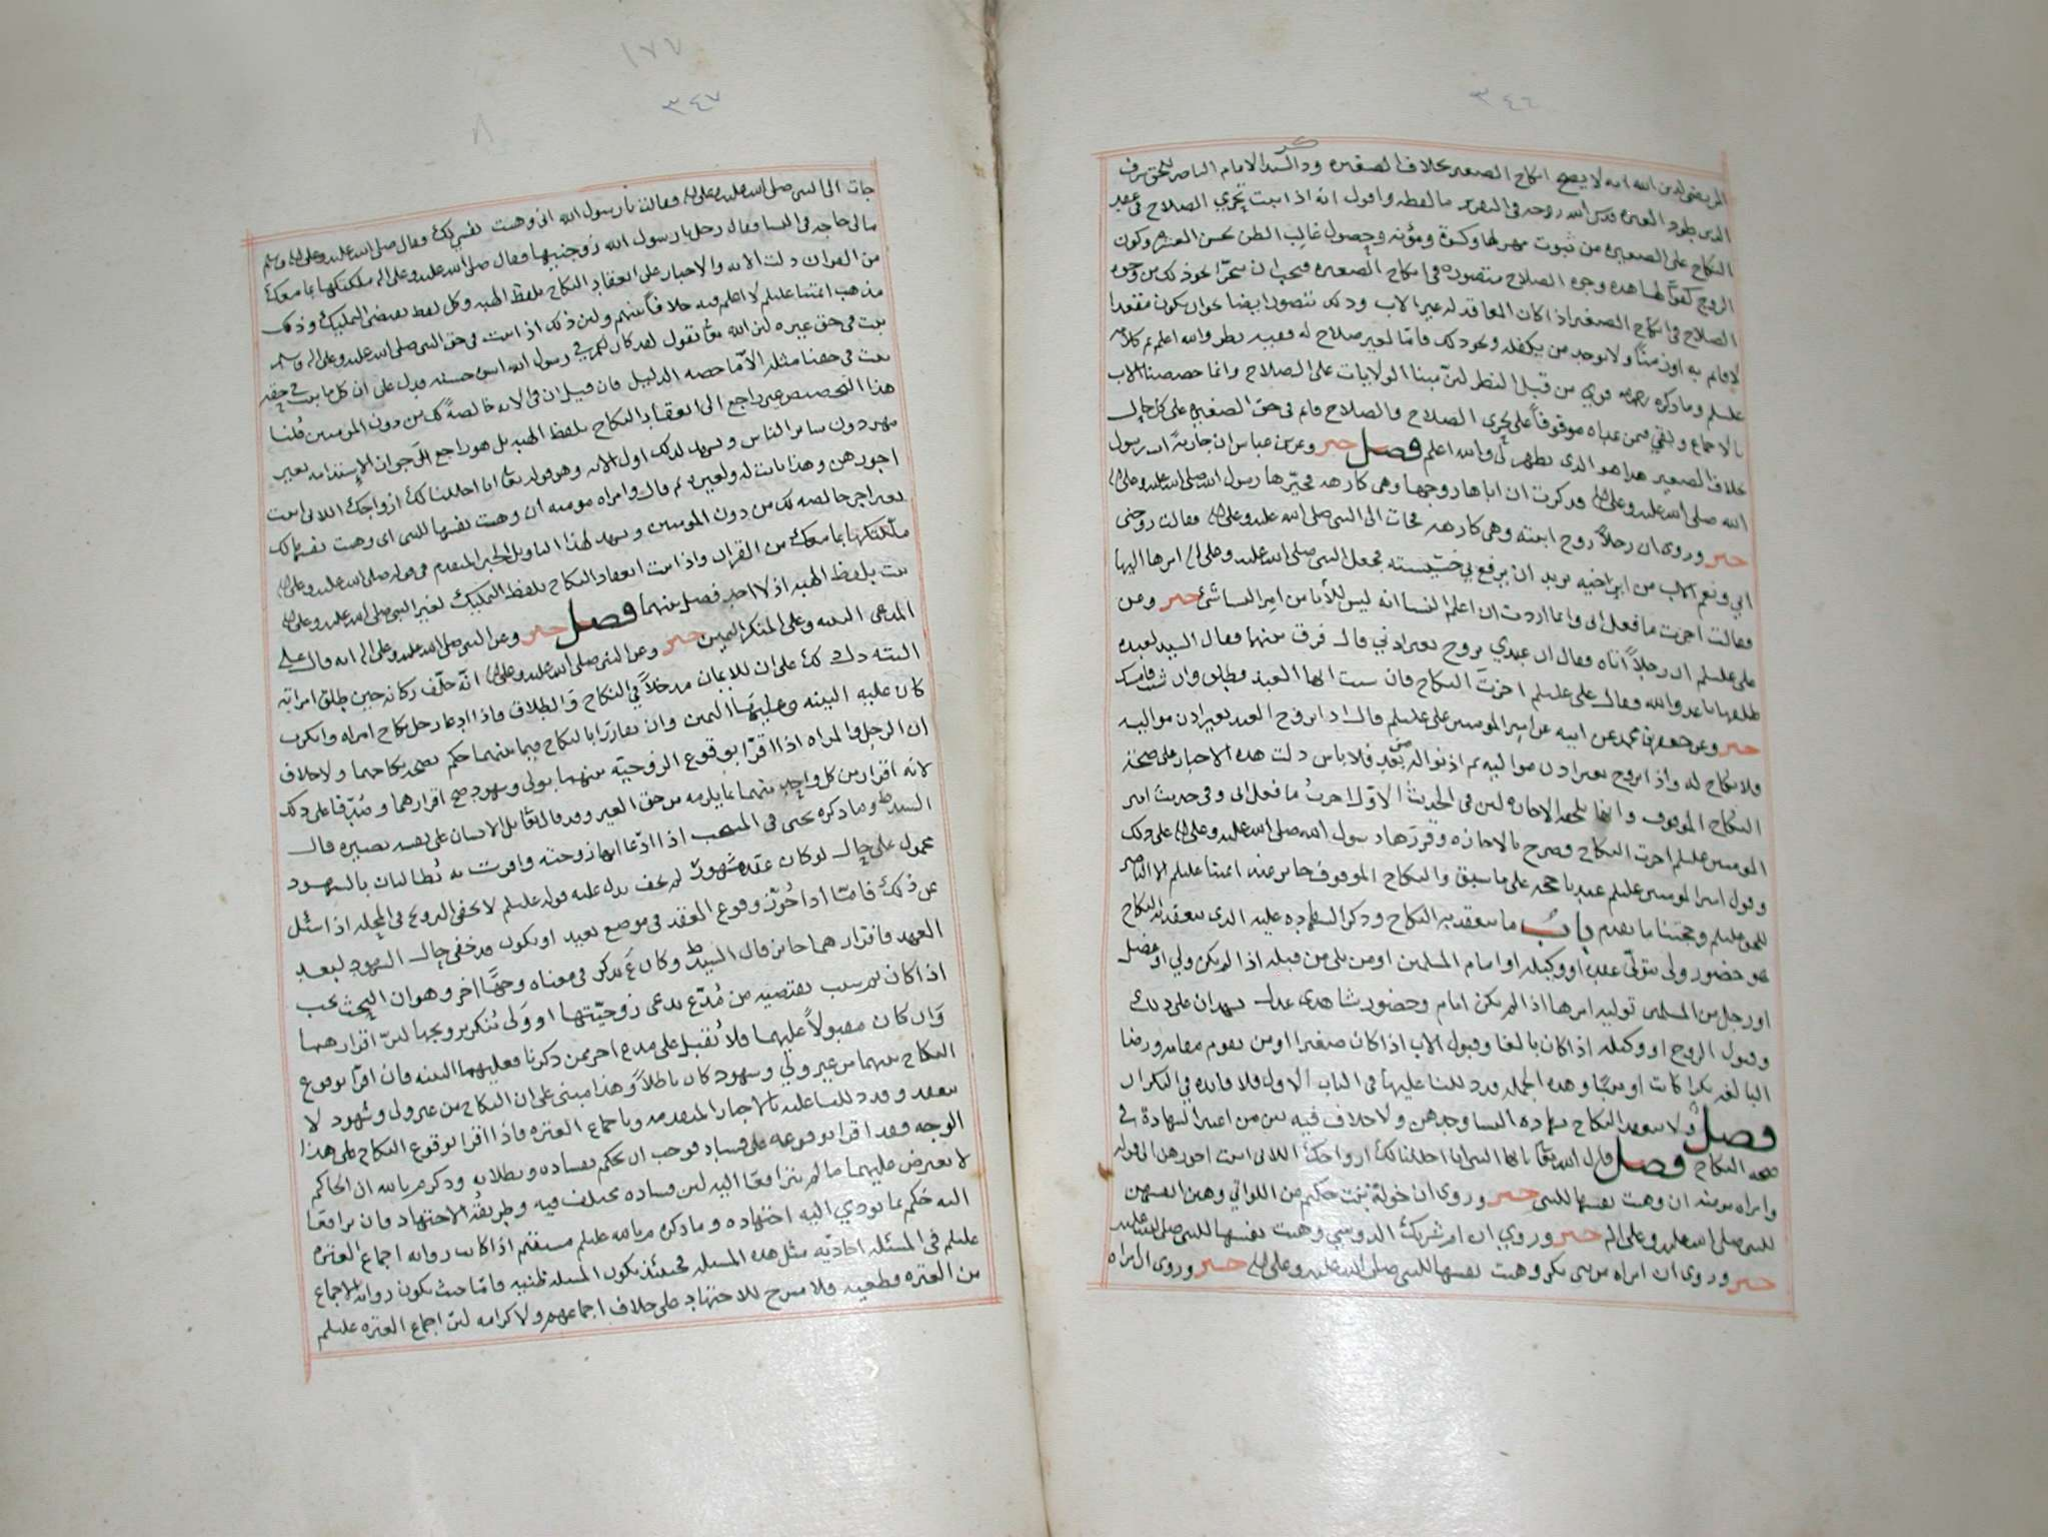 ٣٤٦
المرتضى لدين الله انه لا يصح انكاح الصغير بخلاف الصغيره وذكر السيد الامام الناصر للحق شرف
الدين العتره قدس الله روحه في التقرير ما لفظه واقول انه اذا ثبت تحري الصلاح في عقد
النكاح على الصغيره من ثبوت مهر لها وكسوة ومؤنه وحصول غالب الظن بحسن العشره وكون
الزوج كفوًا لها هذه وجوه الصلاح متصوره في انكاح الصغيره فيجب ان نتحرّا نحو ذلك من وجوه
الصلاح في انكاح الصغير اذا كان العاقد له غير الاب وذلك نتصور ايضا نحو ان يكون مقعدا
لا قايم به او زمنًا ولا يوجد من يكفله ونحو ذلك فامّا لغير صلاح له ففيه نظر والله اعلم تم كلامه
عليلم وما ذكره قوي من قبل النظر لانّ مبنا الولايات على الصلاح وانما خصصنا الاب
بالاجماع وبقي فيمن عداه موقوفًا على تحري الصلاح والصلاح قايم في حق الصغيره على كل حال
خلاف الصغير هذا هو الذي يظهر لي والله اعلم فصل خبر وعن ابن عباس ان جاريةً اتت رسول
الله صلى الله عليه وعلى اله فذكرت ان اباها زوجها وهي كارهه فخيّرها رسول الله صلى الله عليه وعلى اله
خبر وروي ان رجلًا زوج ابنته وهي كارهه فجات الى النبي صلى الله عليه وعلى اله فقالت زوجني
ابي ونعم الاب من ابن اخيه يريد ان يرفع بي خسيسته فجعل النبي صلى الله عليه وعلى اله امرها اليها
فقالت اجزت ما فعل ابي وانما اردت ان اعلم النسا انه ليس للأبا من امر النسا شي خبر وعن
علي عليلم ان رجلًا اتاه فقال ان عبدي تزوج بغير اذني قال فرق بينهما فقال السيد لعبده
طلقها يا عدو الله فقال علي عليلم اجزتَ النكاح فان شيت ايها العبد فطلق وان شيت فامسك
خبر وعن جعفر بن محمد عن ابيه عن امير المومنين علي عليلم قال اذا تزوج العبد بغير اذن مواليه
فلا نكاح له واذا تزوج بغير اذن مواليه ثم اذنوا له من بعد فلا باس دلت هذه الاخبار على صحة
النكاح الموقوف وانها تلحقه الاجازه لان في الحديث الاوّل اجزتُ ما فعل ابي وفي حديث امير
المومنين عليلم اجزت النكاح فصرح بالاجازه وقررها رسول الله صلى الله عليه وعلى اله على ذلك
وقول امير المومنين عليلم عندنا حجه على ما سبق والنكاح الموقوف جايز عند ايمتنا عليلم الا الناصر
للحق عليلم وحجتنا ما تقدم باب ما ينعقد به النكاح وذكر الشهاده عليه الذي ينعقد به النكاح
هو حضور ولي يتولّى عقده او وكيله او امام المسلمين او من يلي من قبله اذا لم يكن ولي او عضل
او رجل من المسلمين توليه امرها اذا لم يكن امام وحضور شاهدي عدل يشهدان على ذلك
وقبول الزوج او وكيله اذا كان بالغا وقبول الاب اذا كان صغيرا او من يقوم مقامه ورضا
البالغه بكرا كانت او ثيبًا وهذه الجمله قد دللنا عليها في الباب الاول فلا فايده في التكرار
فصل ولا ينعقد النكاح بشهاده النسا وحدهن ولا خلاف فيه بين من اعتبر الشهادة في
صحه النكاح فصل قال الله تعا يا ايها النبي انا احللنا لك ازواجك اللاتي اتيت اجورهن الى قوله
وامراه مومنه ان وهبت نفسها للنبي خبر وروي ان خولة بنت حكيم من اللواتي وهبن انفسهن
للنبي صلى الله عليه وعلى اله خبر وروي ان ام شريك الدوسي وهبت نفسها للنبي صلى الله عليه
خبر وروي ان امراه من بني بكر وهبت نفسها للنبي صلى الله عليه وعلى اله خبر وروي ان امراه
١٧٧
٣٤٧
٨
جات الى النبي صلى الله عليه وعلى اله فقالت يا رسول الله اني وهبت نفسي لك فقال صلى الله عليه وعلى اله وسلم
مالي حاجه في النسا فقال رجل يا رسول الله زوجنيها فقال صلى الله عليه وعلى اله ملكتكها بما معك
من القران دلت الايه والاخبار على انعقاد النكاح بلفظ الهبه وكل لفظ يقتضي التمليك وذلك
مذهب ايمتنا عليلم لا اعلم فيه خلافًا بينهم ولان ذلك اذا ثبت في حق النبي صلى الله عليه وعلى اله وسلم
ثبت في حق غيره لان الله تعا يقول لقد كان لكم في رسول الله اسوة حسنه فدل على ان كل ما ثبت في حقه
ثبت في حقنا مثله الا ما خصه الدليل فان قيل ان في الايه خالصةً لك من دون المومنين قلنا
هذا التخصيص غير راجع الى انعقاد النكاح بلفظ الهبه بل هو راجع الى جواز الاستدامه بغير
مهر دون ساير الناس ويشهد لذلك اول الايه وهو قوله تعا انا احللنا لك ازواجك اللاتي اتيت
اجورهن وهذا ثابت له ولغيره ثم قال وامراه مومنه ان وهبت نفسها للنبي اى وهبت نفسها لك
بغير اجر خالصه لك من دون المومنين ويشهد لهذا التاويل الخبر المتقدم في قوله صلى الله عليه وعلى اله
ملّكتكها بما معك من القران واذا ثبت انعقاد النكاح بلفظ التمليك لغير النبي صلى الله عليه وعلى اله
ثبت بلفظ الهبه اذ لا احد فصل بينهما فصل خبر وعن النبي صلى الله عليه وعلى اله انه قال على
المدعي البينه وعلى المنكر اليمين خبر وعن النبي صلى الله عليه وعلى اله انّه حلّف ركانه حين طلق امراته
البته دل ذلك على ان للايمان مدخلًا في النكاح والطلاق فاذا ادعا رجل نكاح امراه وانكرت
كان عليه البينه وعليها اليمين وان تقاررا بالنكاح فيما بينهما حكم بصحة نكاحهما ولا خلاف
ان الرجل والمراه اذا اقرّا بوقوع الزوجيّه بينهما بولي وشهود صح اقرارهما وصُدّقا على ذلك
لانه اقرار من كل واحد منهما بما يلزمه من حق الغير وقد قال تعا بل الانسان على نفسه بصيره قال
السيد ط وما ذكره يحيى في المنتخب اذا ادّعا انها زوجته واقرت به يُطالبان بالشهود
محمول على حال لو كان عقده مشهورا لم يخف يدل عليه قوله عليلم لا يخفى التزويج في المحله اذا سئل
عن ذلك فامّا اذا جُوّز وقوع العقد في موضع بعيد او يكون قد خفي حال الشهود لبعد
العهد فاقرارهما جايز قال السيد ط وكان ع يذكر في معناه وجهًا اخر وهو ان البحث يجب
اذا كان ثم سبب يقتضيه من مُدّع يدعي زوجيّتها او ولي يُنكر تزويجها لانّ اقرارهما
وان كان مقبولًا عليهما فلا يُقبل على مدع اخر ممن ذكرنا فعليهما البينه فان اقرّا بوقوع
النكاح بينهما من غير ولي وشهود كان باطلًا وهذا مبني على ان النكاح من غير ولي وشهود لا
ينعقد وقد دللنا عليه بالاخبار المتقدمه وباجماع العتره فاذا اقرا بوقوع النكاح على هذا
الوجه فقد اقرا بوقوعه على فساد فوجب ان يحكم بفساده وبطلانه وذكر م بالله ان الحاكم
لا يعترض عليهما ما لم يترافعا اليه لان فساده مختلف فيه وطريقُه الاجتهاد فان ترافعا
اليه حكم بما يودي اليه اجتهاده وما ذكره م بالله عليلم مستقيم اذا كانت روايه اجماع العتره
عليلم في المسئله احاديّه مثل هذه المسئله فحينئذ تكون المسئله ظنيه فامّا حيث يكون روايه الاجماع
من العتره قطعيه فلا مسرح للاجتهاد على خلاف اجماعهم ولا كرامه لان اجماع العتره عليلم